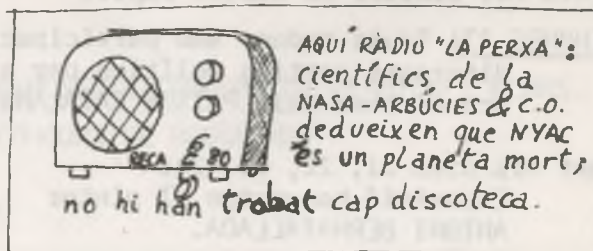 AQUÍ RADIO "LA PERXA":
científics de la
NASA-ARBÚCIES & C.O.
dedueixen que NYAC
és un planeta mort;
no hi han trobat cap discoteca.